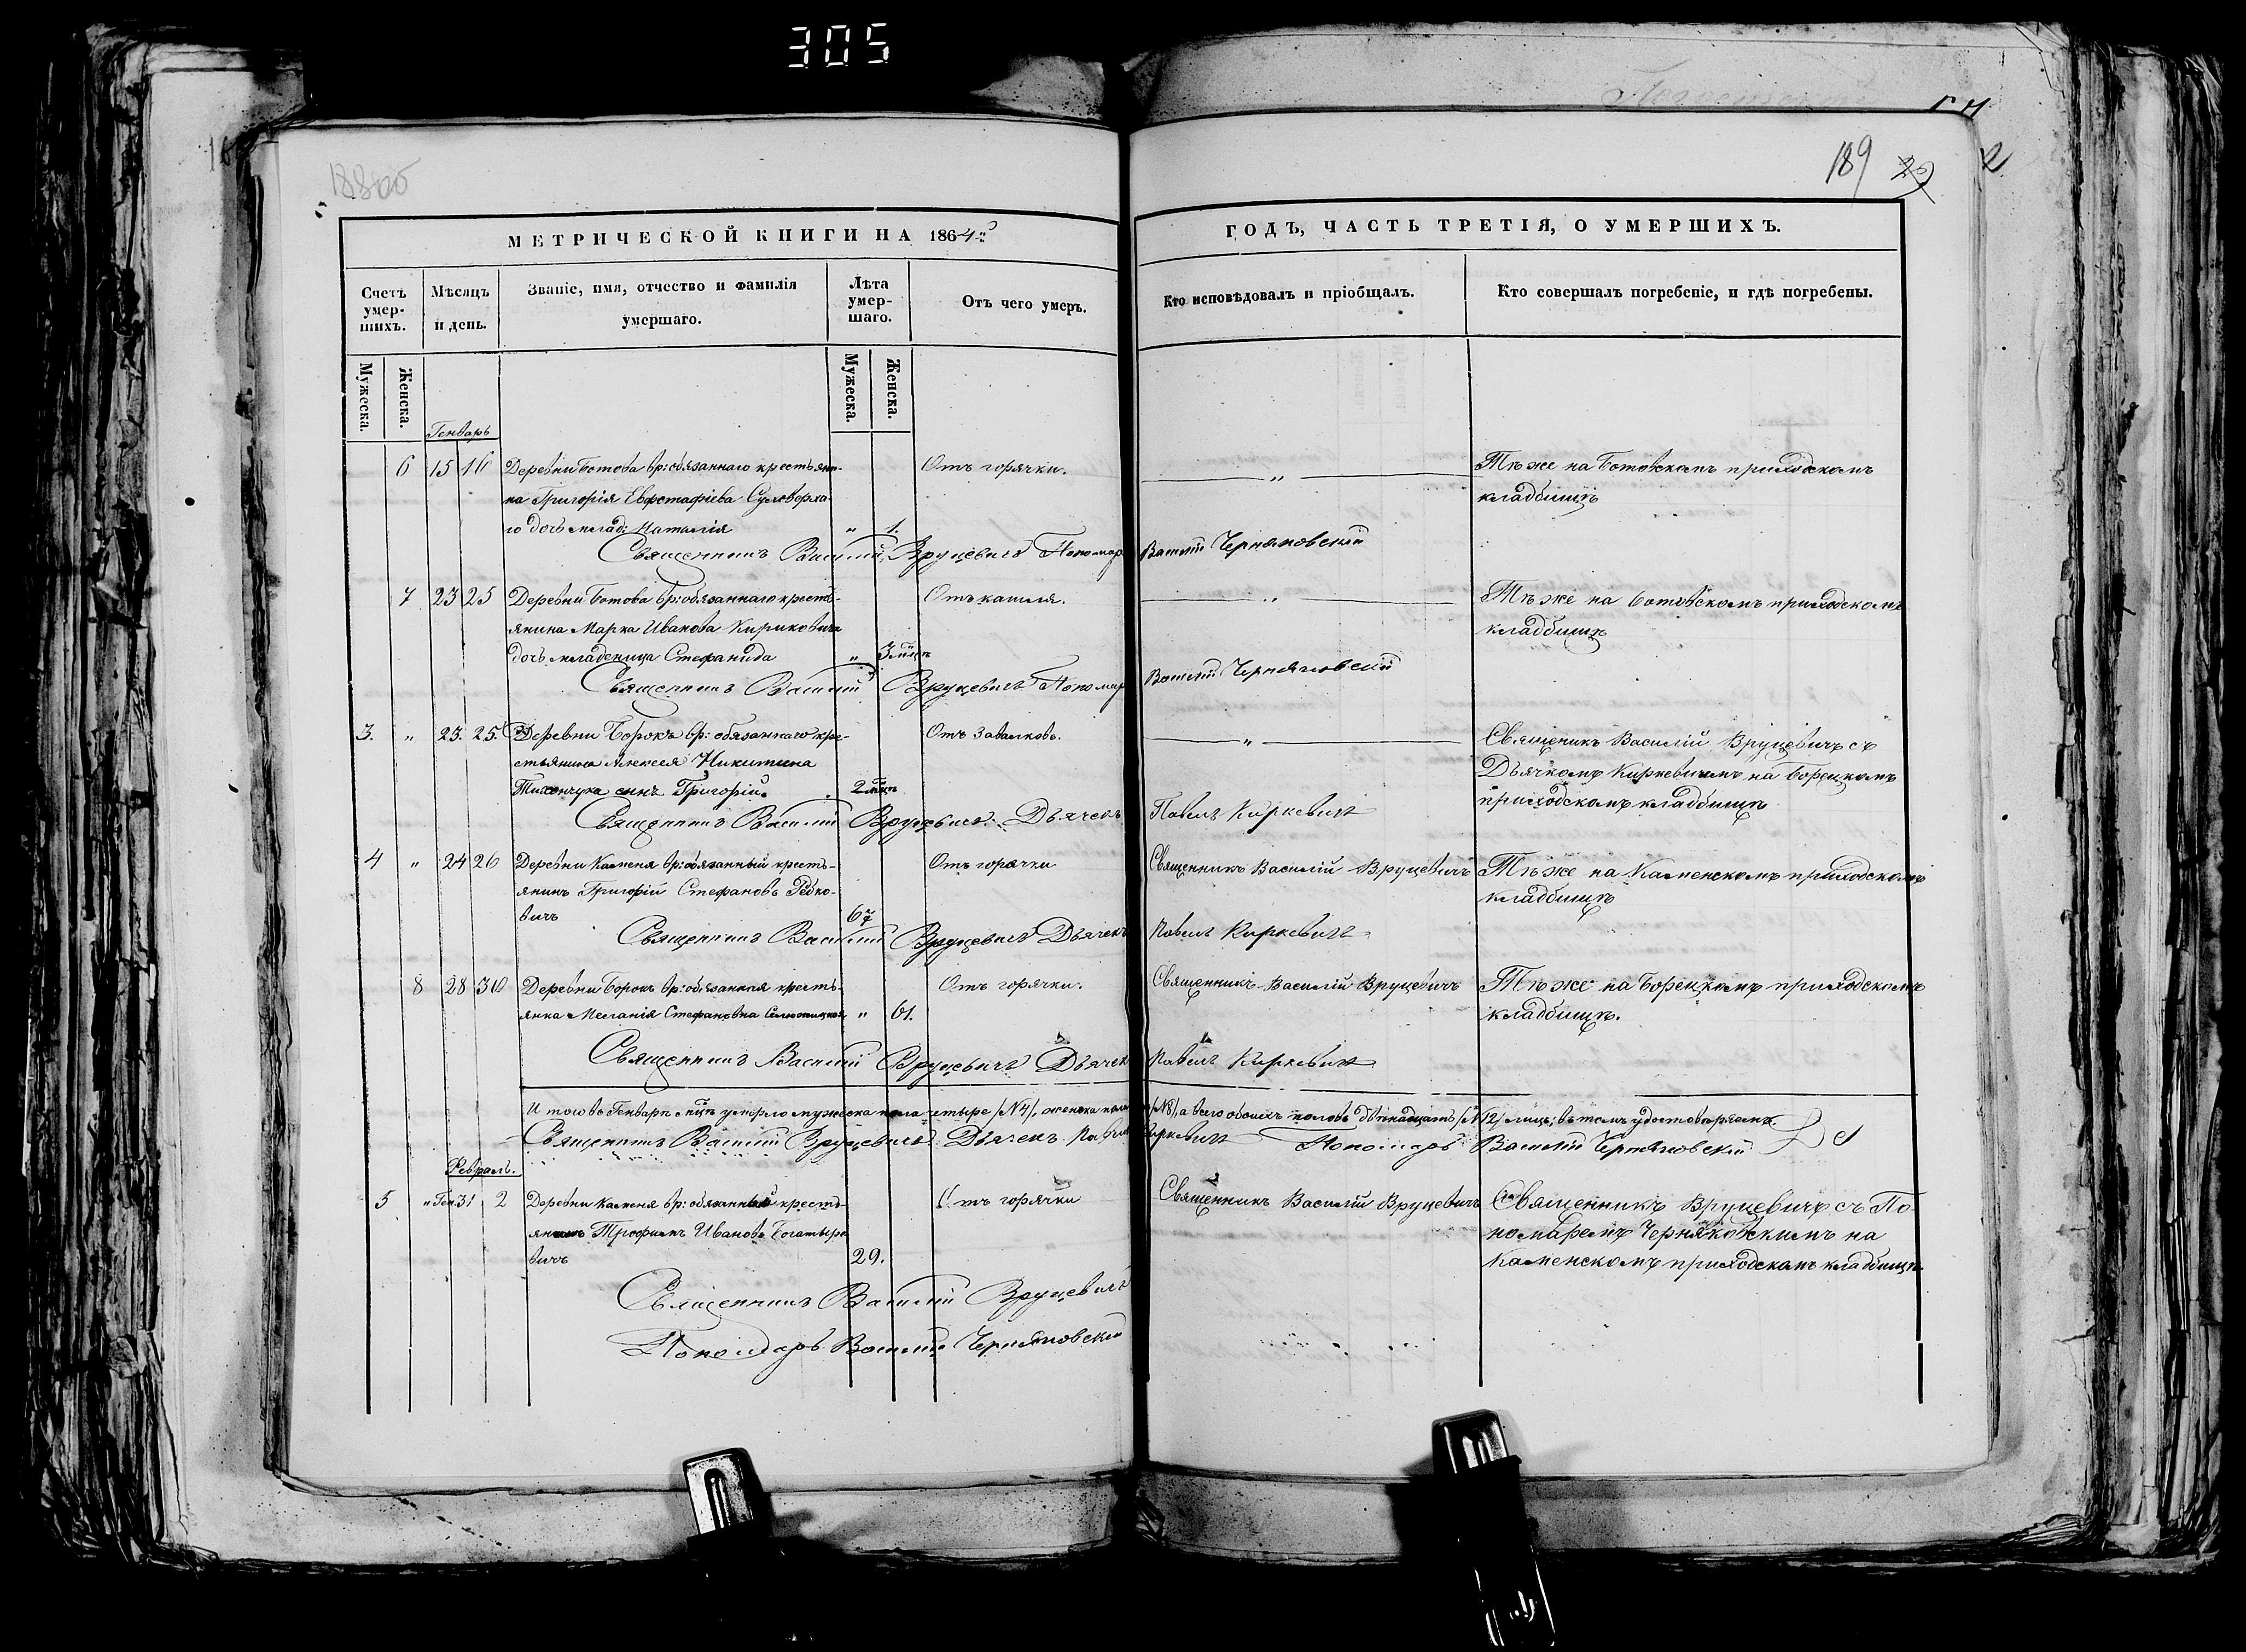 305
189
2
МЕТРИЧЕСКОЙ КНИГИ НА 1864й
ГОДЪ, ЧАСТЬ ТРЕТІЯ, О УМЕРШИХЪ.
Счетъ умер-шихъ.
Мѣсяцъ и день.
Званіе, имя, отчество и фамилія
умершаго.
Лѣта умер-шаго.
Отъ чего умеръ.
Кто исповѣдовалъ и пріобщалъ.
Кто совершалъ погребеніе, и гдѣ погребены.
Мужеска.
Женска.
Мужеска.
Женска.
Генварь
6 15 16 Деревни Ботова вр: обязаннаго крестьяни-
на Григорія Евфстафіева
го дочь млад: Наталія " 1.
Отъ горячки.
"
Тѣже на Ботовскомъ приходскомъ
кладбищѣ
Священникъ Василій Вруцевичъ Пономарь Василій Черняковскій
7 23 25 Деревни Ботова вр: обязаннаго кресть-
янина Марка Иванова Кириковича
дочь младеница Стефанида " 3 мцѣ
Отъ кашля.
"
Тѣже на Ботовскомъ приходскомъ
кладбищѣ
Священникъ Василій Вруцевичъ Пономарь Василій Черняковскій
3. " 23. 25. Деревни Борокъ вр: обязаннаго кре-
стьянина Алексея Никитина
Тихончука сынъ Григорій. 2 мцъ
Отъ завалковъ.
"
Священникъ Василій Вруцевичъ съ
Дьячкомъ Киркевичемъ на Борецкомъ
приходскомъ кладбищѣ
Священникъ Василій Вруцевичъ. Дьячекъ Павелъ Киркевичъ
4 " 24 26 Деревни Каменя вр: обязанный кресть-
янинъ Григорій Стефановъ Редко-
вичъ 67
Отъ горячки
Священникъ Василій Вруцевичъ
Тѣже на Каменскомъ приходскомъ
кладбищѣ
Священникъ Василій Вруцевичъ Дьячекъ Павелъ Киркевичъ
8 28 30 Деревни Борокъ вр: обязанная кресть-
янка Меланія Стефановна " 61.
Отъ горячки.
Священникъ Василій Вруцевичъ
Тѣже на Борецкомъ приходскомъ
кладбищѣ.
Священникъ Василій Вруцевичъ Дьячекъ Павелъ Киркевичъ
Итого въ Генварѣ мцѣ умерло мужеска пола четыре /№4/, женска пола /№8/, а всего обоихъ половъ двѣнадцать /№12/ лицъ; въ томъ удостовѣряемъ.
Священникъ Василій Вруцевичъ. Дьячекъ Павелъ Киркевичъ Пономарь Василій Черняковскій
Февраль.
5 " Ген. 31 2 Деревни Каменя вр: обязанный кресть-
янинъ Трофимъ Ивановъ Богатыре
вичъ 29.
Отъ горячки
Священникъ Василій Вруцевичъ
Священникъ Вруцевичъ съ По-
номаремъ Черняковскимъ на
Каменскомъ приходскомъ кладбищѣ
Священникъ Василій Вруцевичъ
Пономарь Василій Черняковскій